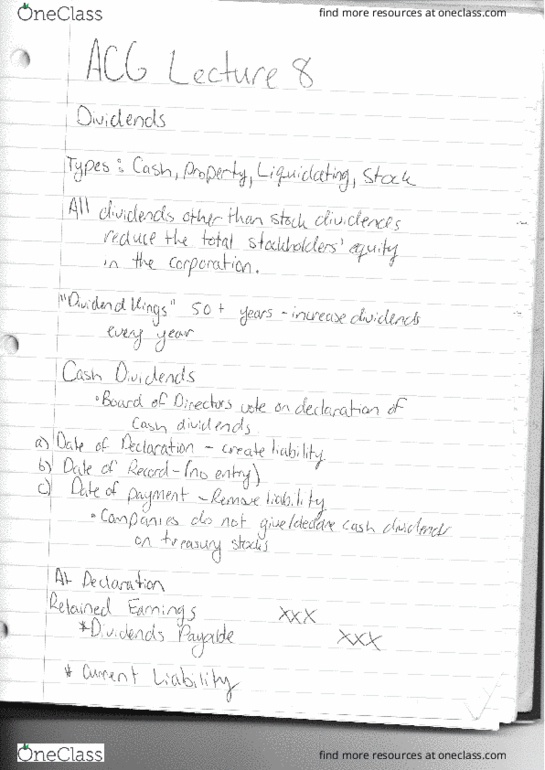 OneClass
find more resources at oneclass.com
ACG Lecture 8
Dividends
Types: Cash, Property, Liquidating, Stock
All dividends other than stock dividends
reduce the total stockholders' equity
in the corporation.
"Dividend Kings" 50+ years - increase dividends
every year
Cash Dividends
• Board of Directors vote on declaration of
cash dividends
a) Date of Declaration - create liability
b) Date of Record - (no entry)
c) Date of payment - Remove liability
• Companies do not give/declare cash dividends
on treasury stocks
At Declaration
Retained Earnings XXX
*Dividends Payable XXX
* Current Liability
OneClass
find more resources at oneclass.com